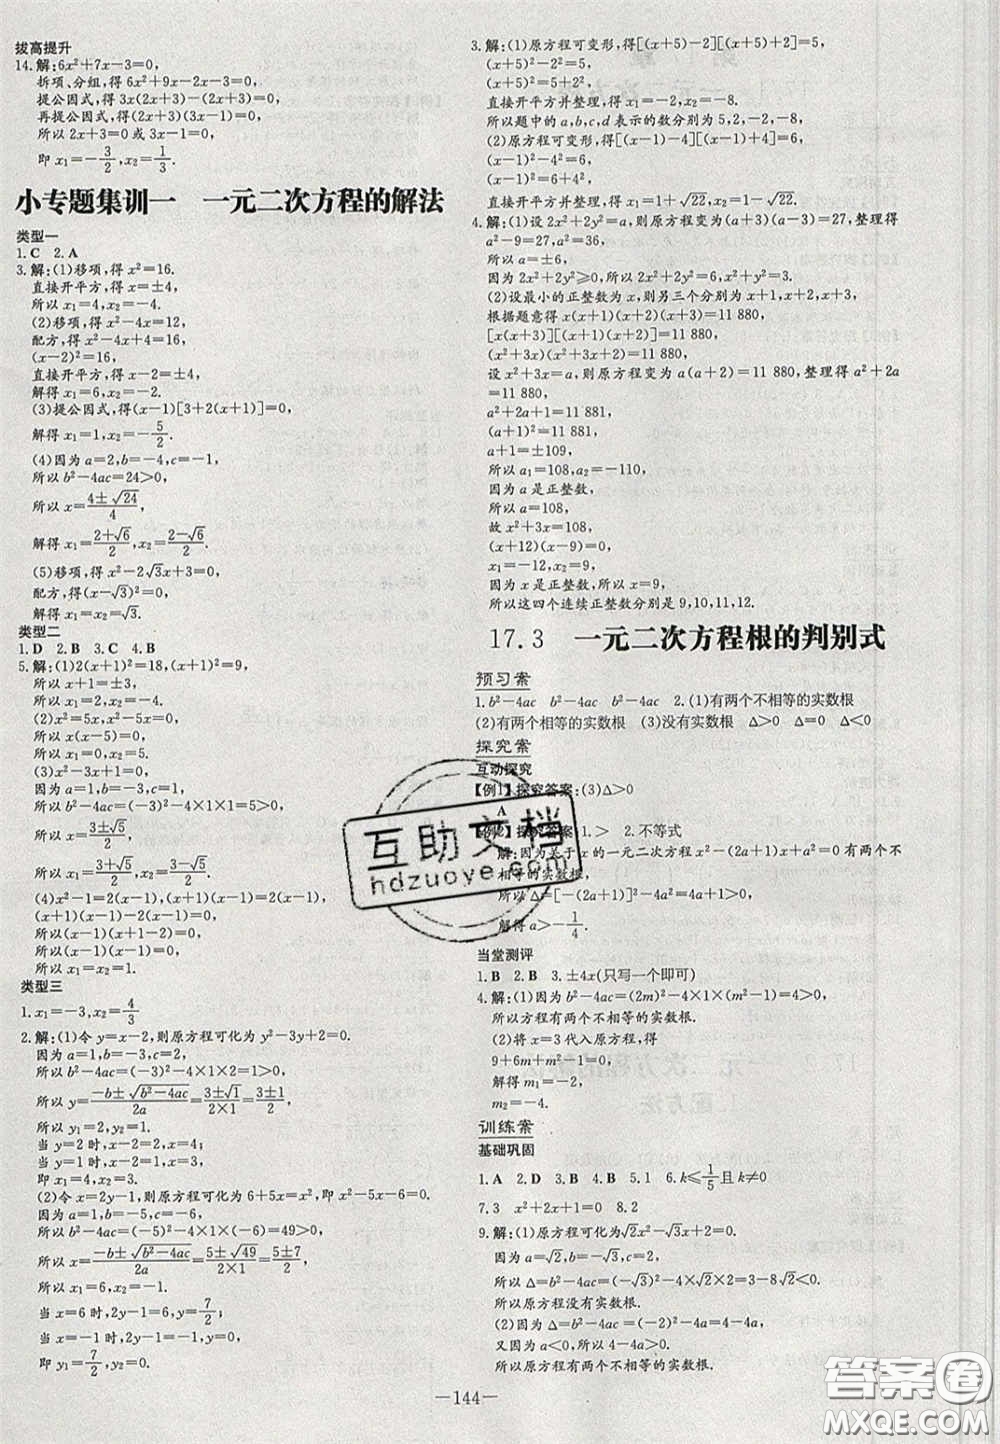 拔高提升
14.解:6x²+7x-3=0,
拆项、分组,得 6x²+9x-2x-3=0,
提公因式,得 3x(2x+3)-(2x+3)=0,
再提公因式,得(2x+3)(3x-1)=0,
所以 2x+3=0 或 3x-1=0,
即 x₁=-3/2,x₂=1/3.
小专题集训一 一元二次方程的解法
类型一
1.C 2.A
3.解:(1)移项,得 x²=16.
直接开平方,得 x=±4,
所以 x₁=4,x₂=-4.
(2)移项,得 x²-4x=12,
配方,得 x²-4x+4=16,
(x-2)²=16,
直接开平方,得 x-2=±4,
解得 x₁=6,x₂=-2.
(3)提公因式,得(x-1)[3+2(x+1)]=0,
解得 x₁=1,x₂=-5/2.
(4)因为 a=2,b=-4,c=-1,
所以 b²-4ac=24>0,
所以 x=(4±√24)/4,
解得 x₁=(2+√6)/2,x₂=(2-√6)/2.
(5)移项,得 x²-2√3x+3=0,
配方,得(x-√3)²=0,
解得 x₁=x₂=√3.
类型二
1.D 2.B 3.C 4.B
5.解:(1)2(x+1)²=18,(x+1)²=9,
所以 x+1=±3,
所以 x₁=2,x₂=-4.
(2)x²=5x,x²-5x=0,
所以 x(x-5)=0,
所以 x₁=0,x₂=5.
(3)x²-3x+1=0,
因为 a=1,b=-3,c=1,
所以 b²-4ac=(-3)²-4×1×1=5>0,
所以 x=(3±√5)/2,
所以 x₁=(3+√5)/2,x₂=(3-√5)/2.
(4)x²-1=2(x-1),(x+1)(x-1)=2(x-1),
所以(x-1)(x-1)=0,
所以 x₁=x₂=1.
类型三
1.x₁=-3,x₂=4/3
2.解:(1)令 y=x-2,则原方程可化为 y²-3y+2=0.
因为 a=1,b=-3,c=2,
所以 b²-4ac=(-3)²-4×1×2=1>0,
所以 y=(-b±√(b²-4ac))/2a=(3±√1)/(2×1)=(3±1)/2,
所以 y₁=2,y₂=1.
当 y=2 时,x-2=2,x=4;
当 y=1 时,x-2=1,x=3,
即 x₁=4,x₂=3.
(2)令 x=2y-1,则原方程可化为 6+5x=x²,即 x²-5x-6=0.
因为 a=1,b=-5,c=-6,
所以 b²-4ac=(-5)²-4×1×(-6)=49>0,
所以 x=(-b±√(b²-4ac))/2a=(5±√49)/(2×1)=(5±7)/2,
所以 x₁=6,x₂=-1.
当 x=6 时,2y-1=6,y=7/2;
当 x=-1 时,2y-1=-1,y=0,
即 y₁=7/2,y₂=0.
3.解:(1)原方程可变形,得[(x+5)-2][(x+5)+2]=5,
(x+5)²-2²=5,
(x+5)²=9,
直接开平方并整理,得 x₁=-2,x₂=-8.
所以题中的 a,b,c,d 表示的数分别为 5,2,-2,-8,
(2)原方程可变形,得[(x-1)-4][(x-1)+4]=6,
(x-1)²-4²=6,
(x-1)²=22,
直接开平方并整理,得 x₁=1+√22,x₂=1-√22.
4.解:(1)设 2x²+2y²=a,则原方程变为(a+3)(a-3)=27,整理得
a²-9=27,a²=36,
所以 a=±6,
因为 2x²+2y²≥0,所以 2x²+2y²=6,x²+y²=3.
(2)设最小的正整数为 x,则另三个分别为 x+1,x+2,x+3,
根据题意得 x(x+1)(x+2)(x+3)=11 880,
[x(x+3)][(x+1)(x+2)]=11 880,
(x²+3x)(x²+3x+2)=11 880,
设 x²+3x=a,则原方程变为 a(a+2)=11 880,整理得 a²+2a
=11 880,
a²+2a+1=11 881,
(a+1)²=11 881,
a+1=±109,
所以 a₁=108,a₂=-110,
因为 a 是正整数,
所以 a=108,
故 x²+3x=108,
(x+12)(x-9)=0,
x₁=-12,x₂=9,
因为 x 是正整数,所以 x=9,
所以这四个连续正整数分别是 9,10,11,12.
17.3 一元二次方程根的判别式
预习案
1.b²-4ac b²-4ac b²-4ac 2.(1)有两个不相等的实数根
(2)有两个相等的实数根 (3)没有实数根 Δ>0 Δ=0 Δ<0
探究案
互动探究
【例1】探究答案:(3)Δ>0
A
【例2】探究答案:1.> 2.不等式
解:因为关于 x 的一元二次方程 x²-(2a+1)x+a²=0 有两个不
相等的实数根,
所以 Δ=[-(2a+1)]²-4a²=4a+1>0,
解得 a>-1/4.
当堂测评
1.B 2.B 3.±4x(只写一个即可)
4.解:(1)因为 b²-4ac=(2m)²-4×1×(m²-1)=4>0,
所以方程有两个不相等的实数根.
(2)将 x=3 代入原方程,得
9+6m+m²-1=0,
解得 m₁=-2,
m₂=-4.
训练案
基础巩固
1.A 2.D 3.D 4.B 5.1 6.k≤1/5且k≠0
7.3 x²+2x+1=0 8.2
9.解:(1)原方程可化为√2x²-√3x+2=0.
因为 a=√2,b=-√3,c=2,
所以 Δ=b²-4ac=(-√3)²-4×√2×2=3-8√2<0.
所以原方程没有实数根.
(2)因为 Δ=b²-4ac=(-2)²-4a=4-4a,
又因为 a<0,所以 4-4a>0,
所以原方程有两个不相等的实数根.
互助文档
hdzuoye.com
-144-
答案圈
MXQE.COM